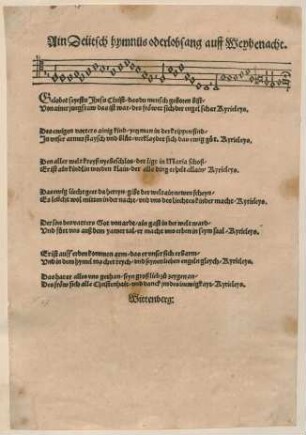 Ain Deütsch hymnus oder lobsang auff Weyhenacht.
Gelobet seystu Jhesu Christ das du mensch geboren bist
Von ainer junckfraw das ist war des frewet sich der engel schar Kyrieleys.
Des ewigen vatters ainig kind yetz man in der krippen find
In unser armes flaysch und blüt verklaydet sich das ewig güt. Kyrieleys.
Den aller welt kreyß nye beschloß der ligt in Maria schoß
Er ist ain kindlin worden klain der alle ding erhelt allain Kyrieleys.
Das ewig liecht geet da herein gibt der welt ain newen scheyn
Es leücht wol mitten in der nacht und uns des liechtes kinder macht Kyrieleys.
Der sun des vatters Got von art ain gast in der welt ward
Und fürt uns auß dem yamer tal er macht uns erben in seym saal Kyrieleys.
Er ist auff erden kommen arm das er unser sich erbarm
Und in dem hymel mache reych und seynen lieben engeln gleych Kyrieleys.
Das hat er alles uns gethan seyn groß lieb zü zeygen an
Des frew sich alle Christenhait und danck jm des in ewigkayt Kyrieleys.
Wittenberg: